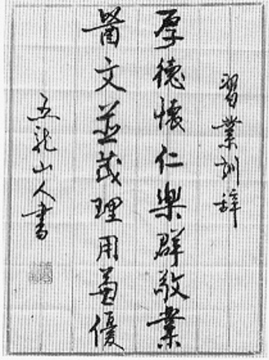 習業訓辞
厚德懷仁樂群敬業
醫文並茂理用兼優
五龍山人書